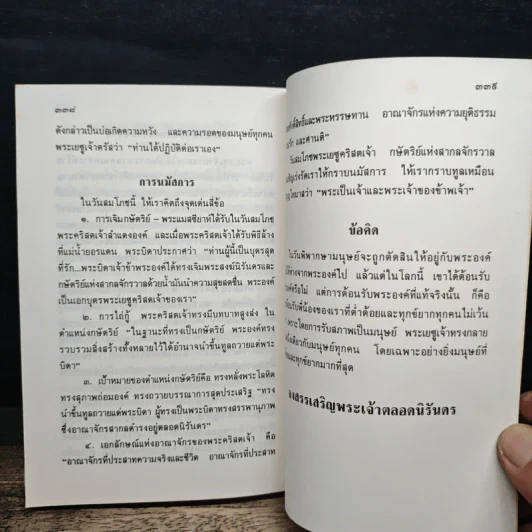 ๓๓๘
ดังกล่าวเป็นบ่อเกิดความหวัง และความรอดของมนุษย์ทุกคน
พระเยซูเจ้าตรัสว่า "ท่านได้ปฏิบัติต่อเราเอง"
การนมัสการ
ในวันสมโภชนี้ ให้เราคิดถึงจุดเด่นสี่ข้อ
๑. การเจิมกษัตริย์ - พระแมสซียาห์ได้รับในวันสมโภช
พระคริสตเจ้าสำแดงองค์ และเมื่อพระคริสตเจ้าได้รับพิธีล้าง
ที่แม่น้ำยอรแดน พระบิดาประกาศว่า "ท่านผู้นี้เป็นบุตรสุด
ที่รัก...พระบิดาเจ้าข้าพระองค์ได้ทรงเจิมพระสงฆ์นิรันดรและ
กษัตริย์แห่งสากลจักรวาลด้วยน้ำมันนำความสุขสดชื่น พระองค์
เป็นเอกบุตรพระเยซูคริสตเจ้าของเรา"
๒. การไถ่กู้ พระคริสตเจ้าทรงมีบทบาทสูงส่ง ใน
ตำแหน่งกษัตริย์ "ในฐานะที่ทรงเป็นกษัตริย์ พระองค์ทรง
รวบรวมสิ่งสร้างทั้งหลายไว้ใต้อำนาจนำขึ้นทูลถวายแด่พระ
บิดา"
๓. เป้าหมายของตำแหน่งกษัตริย์คือ ทรงหลั่งพระโลหิต
ทรงสุภาพถ่อมองค์ ทรงถวายบรรณาการสุดประเสริฐ "ทรง
นำขึ้นทูลถวายแด่พระบิดา ผู้ทรงเป็นพระบิดาทรงสรรพานุภาพ
ซึ่งอาณาจักรสากลดำรงอยู่ตลอดนิรันดร"
๔. เอกลักษณ์แห่งอาณาจักรของพระคริสตเจ้า คือ
"อาณาจักรที่ประสาทความจริงและชีวิต อาณาจักรที่ประสาท
๓๓๙
ศักดิ์สิทธิ์และพระหรรษทาน อาณาจักรแห่งความยุติธรรม
และศานติ"
วันสมโภชพระเยซูคริสตเจ้า กษัตริย์แห่งสากลจักรวาล
เร่งรัดเราให้กราบนมัสการ ให้เรากราบทูลเหมือน
โทมาสว่า "พระเป็นเจ้าและพระเจ้าของข้าพเจ้า"
ข้อคิด
ในวันพิพากษามนุษย์จะถูกตัดสินให้อยู่กับพระองค์
ห่างจากพระองค์ไป แล้วแต่ในโลกนี้ เขาได้ต้อนรับ
หรือไม่ แต่การต้อนรับพระองค์ที่แท้จริงนั้น ก็คือ
รับพี่น้องของเราที่ต่ำต้อยและทุกข์ยากไม่เว้น
เพราะโดยการรับสภาพเป็นมนุษย์ พระเยซูเจ้าทรงกลาย
หนึ่งเดียวกับมนุษย์ทุกคน โดยเฉพาะอย่างยิ่งมนุษย์ที่
และทุกข์ยากมากที่สุด
สรรเสริญพระเจ้าตลอดนิรันดร